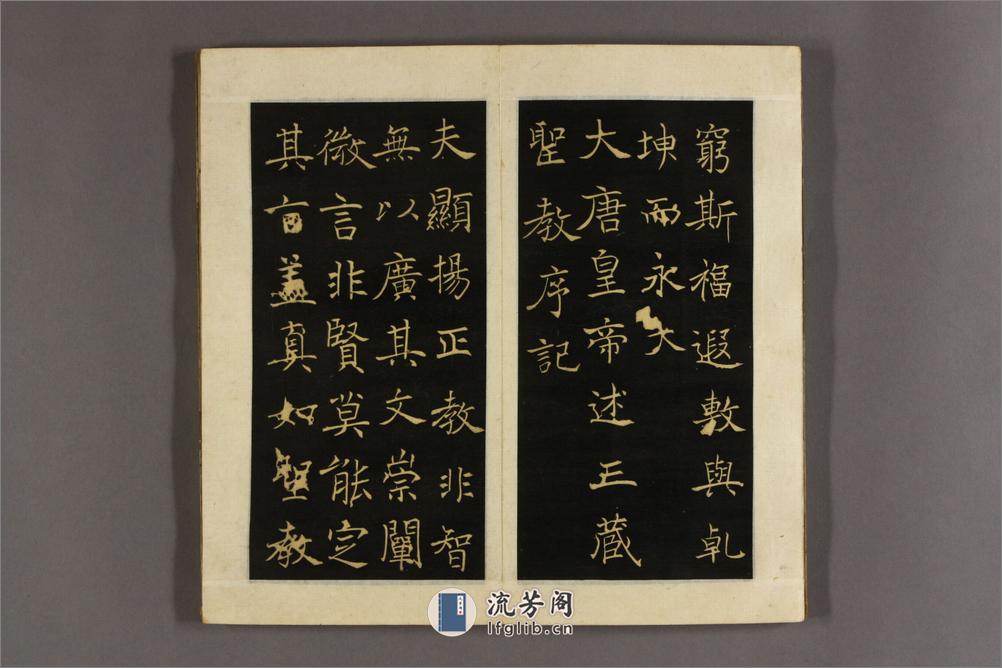 窮斯福遐敷與乹
坤而永大
大唐皇帝述三藏
聖教序記
夫顯揚正教非智
無以廣其文崇闡
微言非賢莫能定
其旨蓋真如聖教
流芳阁
lfglib.cn